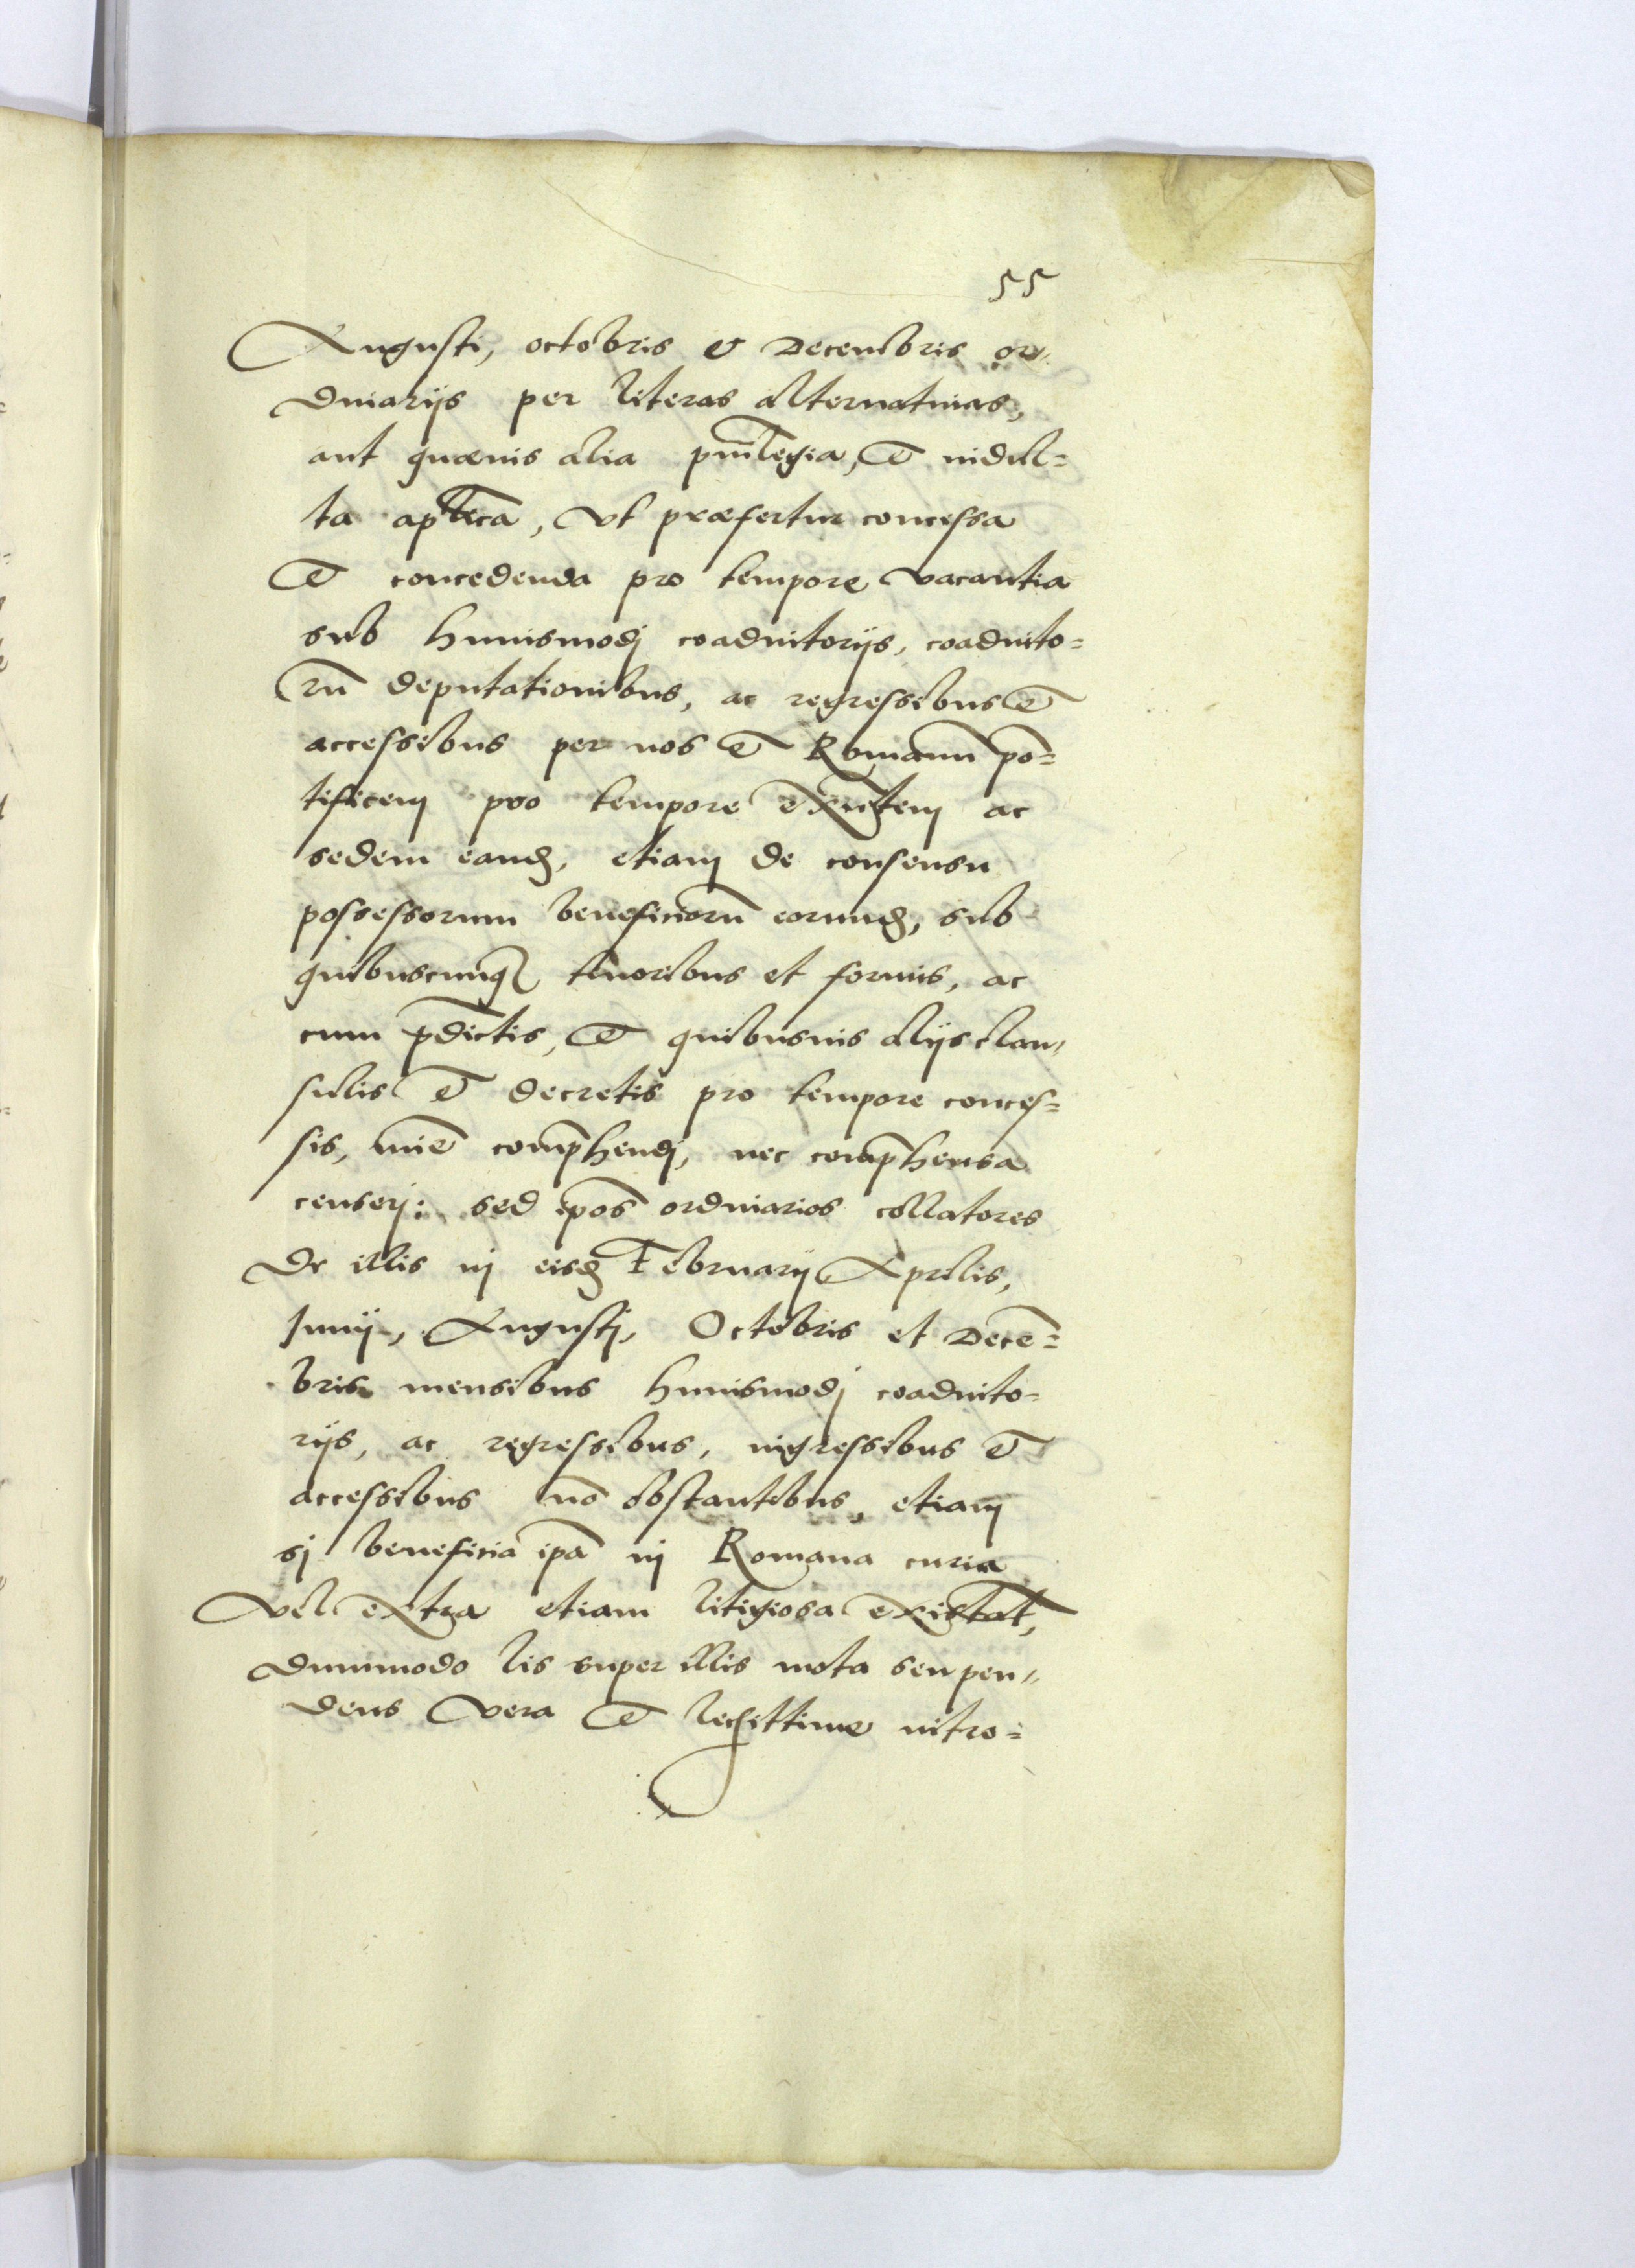 55
Augusti, octobris & Decembris or¬
dinarijs per literas alternatiuas,
aut quæuis alia priuilegia, & indul=
ta aplica, vt præfertur concessa
& concedenda pro tempore vacantia
sub huiusmodj coadiutorijs, coadiuto=
rū deputationibus, ac regressibus &
accessibus per nos & Romanū pō=
tificem pro tempore existētem ac
sedem eand, etiam de consensu
possessorum beneficiorū eorund, sub
quibuscunq tenoribus et formis, ac
cum p̄dictis, & quibusuis alijs clau¬
sulis & decretis pro tempore conces=
sis, mīe comp̄hendj, nec comp̄hensa
censerj: sed ip̄os ordinarios collatores
De illis in eisd Februarij Aprilis,
Junij, Augustj, Octobris et Decē=
bris mensibus huiusmodj coadiuto=
rijs, ac regressibus, ingressibus &
accessibus nō obstantibus, etiam
sj beneficia ip̄a in Romana curia
vel extra etiam litigiosa existāt,
dummodo lis super illis mota seu pen¬
dens vera & legittime intro=